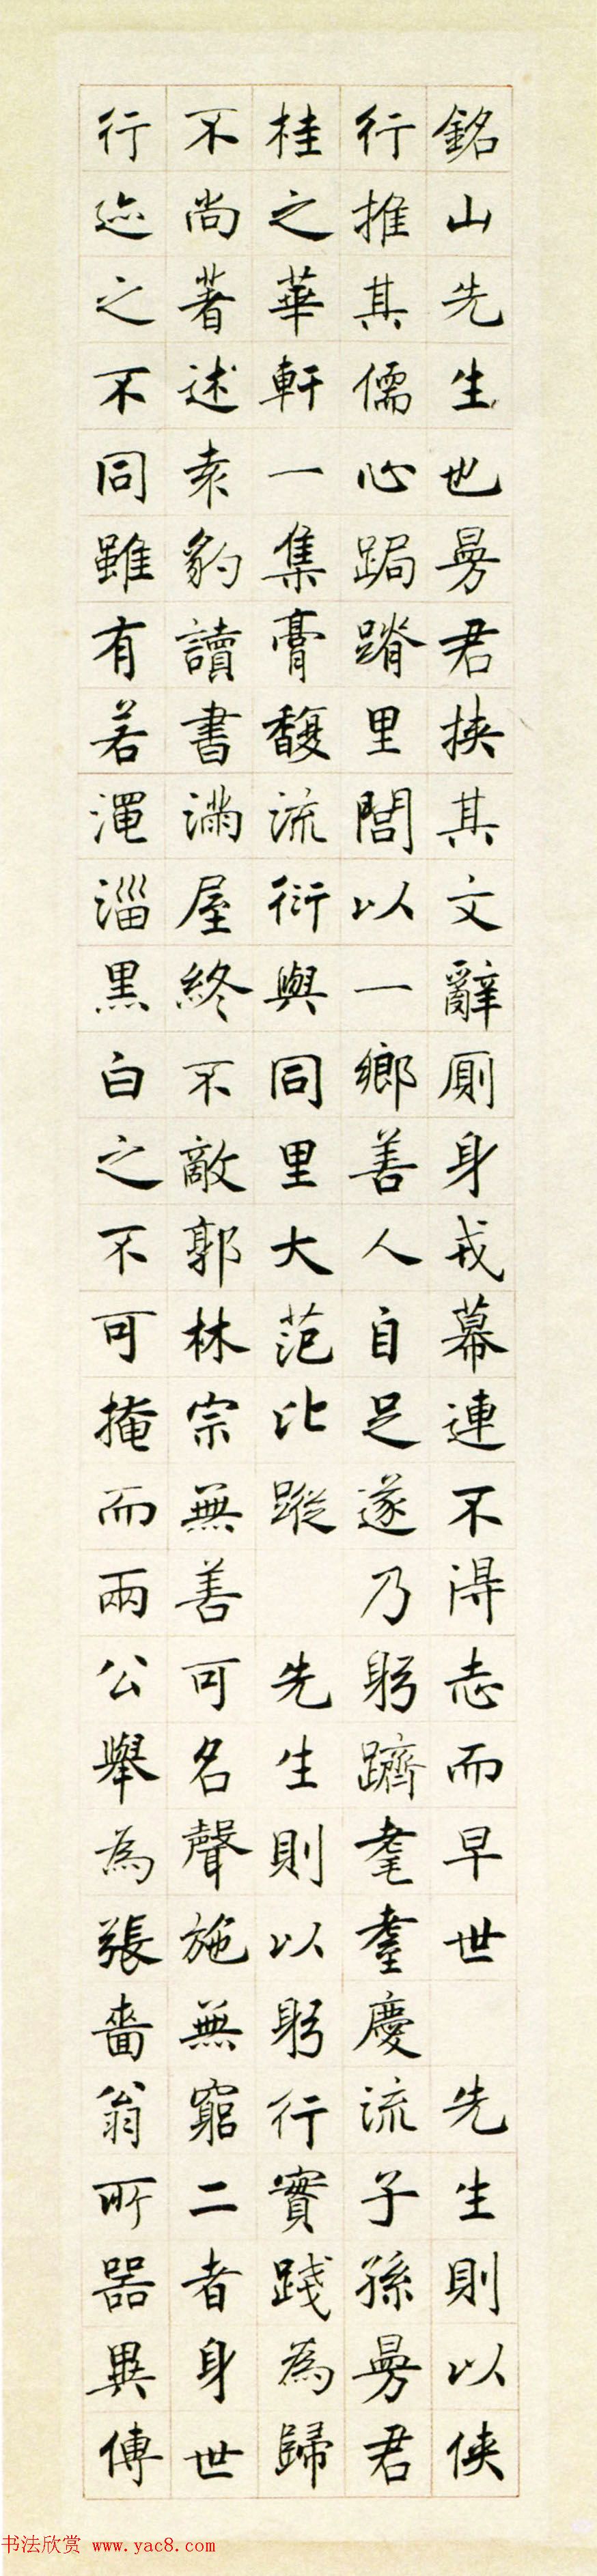 銘山先生也曼君挾其文辭厠身戎幕連不得志而早世 先生則以俠
行推其儒心跼蹐里閭以一鄉善人自足遂乃躬躋耄耋慶流子孫曼君
桂之華軒一集膏馥流衍與同里大范比蹤 先生則以躬行實踐為歸
不尚著述袁豹讀書滿屋終不敵郭林宗無善可名聲施無窮二者身世
行迹之不同雖有若澠淄黑白之不可掩而兩公舉為張嗇翁所器異傳
书法欣赏 www.yac8.com